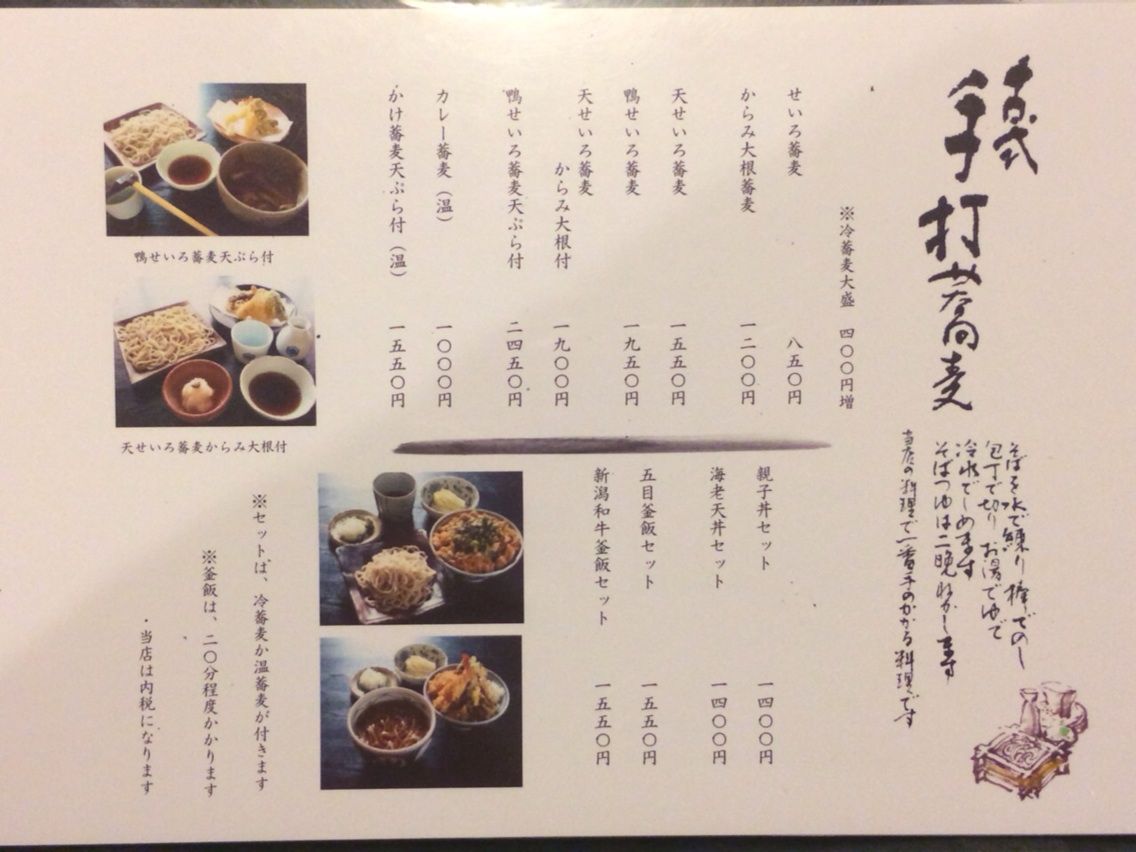 古式
手打蕎麦
そばを水で練り棒でのし
包丁で切りお湯でゆで
冷水でしめます
そばつゆは二晩ねかします
当店の料理で一番手のかかる料理です
※冷蕎麦大盛 四〇〇円増
せいろ蕎麦 八五〇円
からみ大根蕎麦 一二〇〇円
天せいろ蕎麦 一五五〇円
鴨せいろ蕎麦 一九五〇円
天せいろ蕎麦
からみ大根付 一九〇〇円
鴨せいろ蕎麦天ぷら付 二四五〇円
カレー蕎麦（温） 一〇〇〇円
かけ蕎麦天ぷら付（温） 一五五〇円
鴨せいろ蕎麦天ぷら付
天せいろ蕎麦からみ大根付
親子丼セット 一四〇〇円
海老天丼セット 一四〇〇円
五目釜飯セット 一五五〇円
新潟和牛釜飯セット 一五五〇円
※セットは、冷蕎麦か温蕎麦が付きます
※釜飯は、二〇分程度かかります
・当店は内税になります